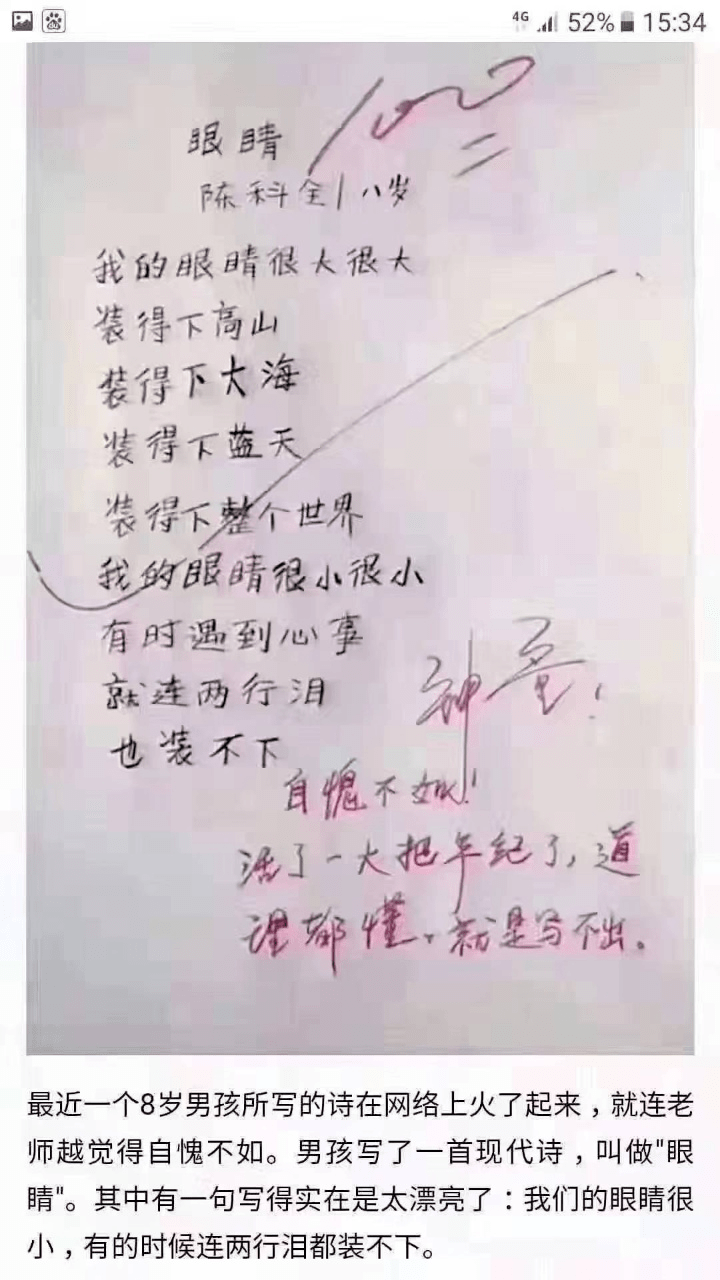 4G 52% 15:34
100
眼睛
陈科全 八岁
我的眼睛很大很大
装得下高山
装得下大海
装得下蓝天
装得下整个世界
我的眼睛很小很小
有时遇到心事
就连两行泪
也装不下
神童!
自愧不如!
活了一大把年纪了,道
理都懂,就是写不出。
最近一个8岁男孩所写的诗在网络上火了起来,就连老
师越觉得自愧不如。男孩写了一首现代诗,叫做"眼
睛"。其中有一句写得实在是太漂亮了:我们的眼睛很
小,有的时候连两行泪都装不下。